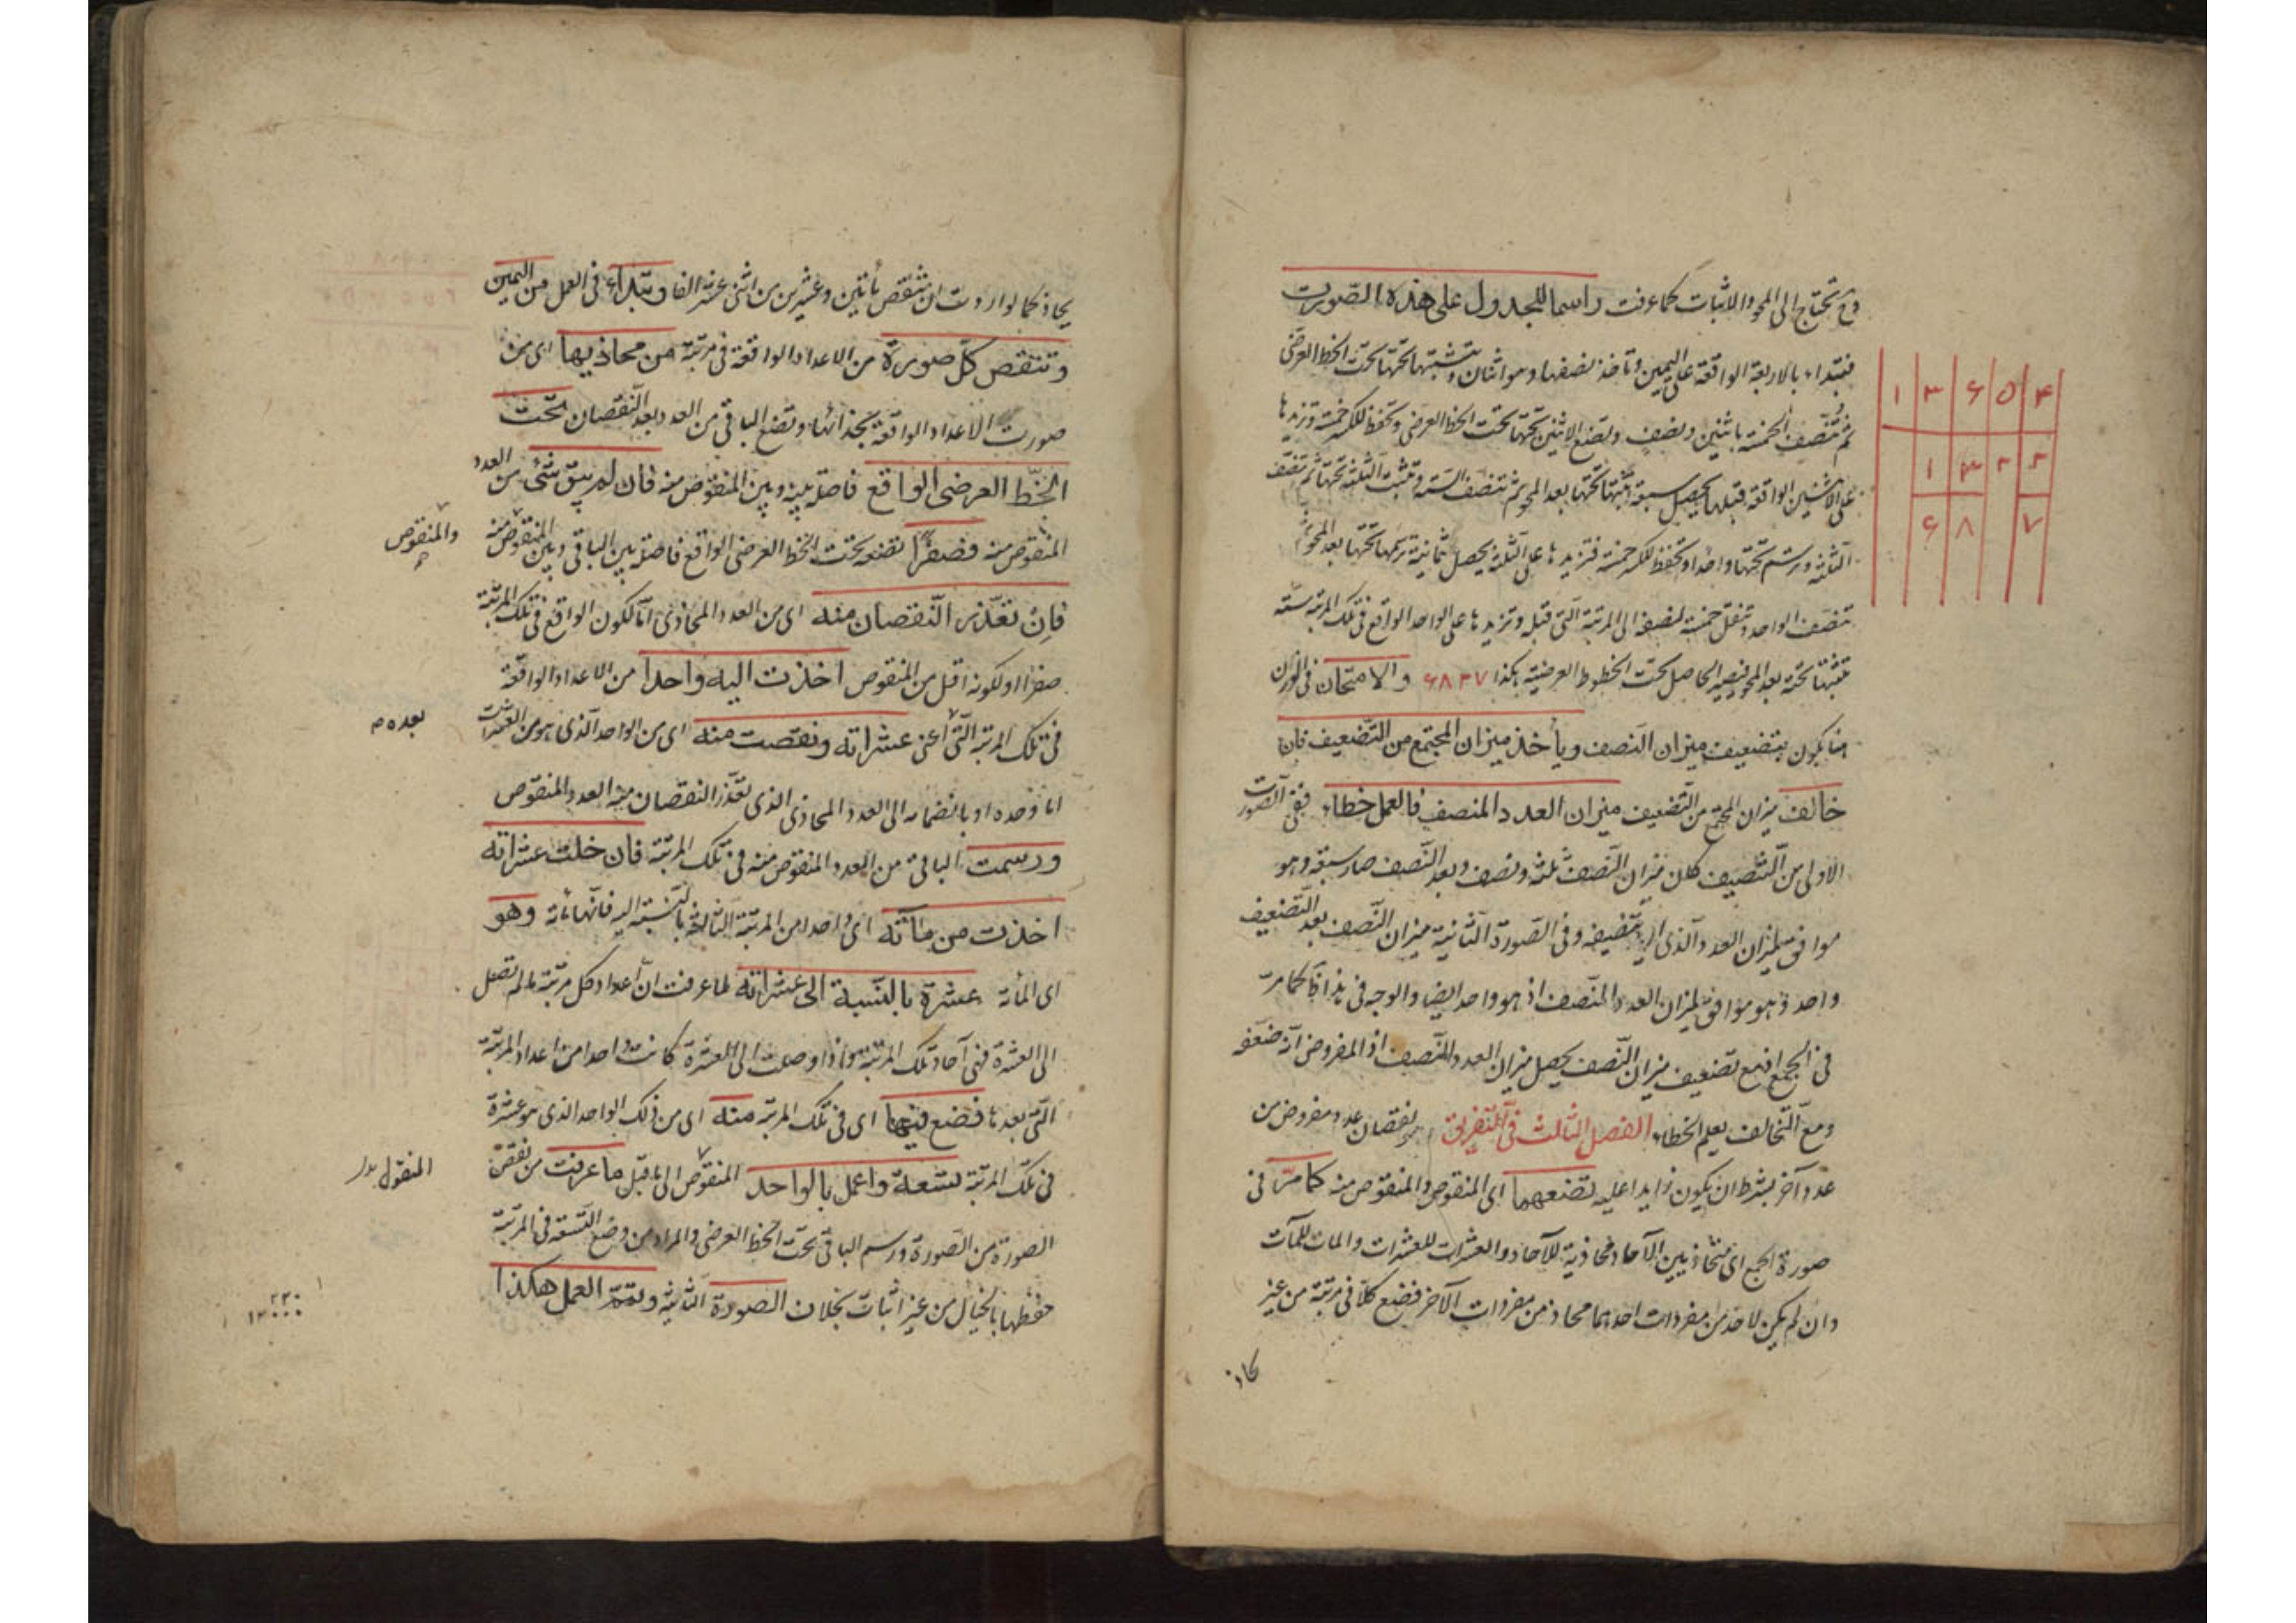 وح تحتاج الى المحو والاثبات كما عرفت راسما للجدول على هذه الصورت
فتبتداء بالاربعة الواقعة على اليمين وتاخذ نصفها وهو اثنان وتثبتها تحتها تحت الخط العرضى
ثم تنصف الخمسة باثنين ونصف وتضع الاثنين تحتها تحت الخط العرضى وتحفظ للكسر خمسة وتزيدها
على الاثنين الواقعة قبلها يحصل سبعة تثبتها تحتها بعد المحو ثم تنصف الستة وتثبت الثلثة تحتها ثم تنصف
الثلثة وترسم تحتها واحدا وتحفظ للكسر خمسة فتزيدها على الثلثة يحصل ثمانية ترسمها تحتها بعد المحو ثم
تنصف الواحد وتنقل خمسة لنصفه الى المرتبة التى قبله وتزيدها على الواحد الواقع فى تلك المرتبة ستة
تثبتها تحته بعد المحو فيصير الحاصل تحت الخطوط العرضية هكذا ۶۸۲۷ والامتحان فى الميزان
هنا يكون بتضعيف ميزان النصف ويأخذ ميزان المجتمع من التضعيف فان
خالف ميزان المجتمع من التضعيف ميزان العدد المنصف فالعمل خطاء ففى الصورت
الاولى من التنصيف كان ميزان النصف ثلثة ونصف وبعد التضعيف صار سبعة وهو
موافق لميزان العدد الذى اريد تنصيفه وفى الصورة الثانية ميزان النصف بعد التضعيف
واحد وهو موافق لميزان العدد المنصف اذ هو واحد ايضا والوجه فى هذا كما مر
فى الجمع اذ مع تضعيف ميزان النصف يحصل ميزان العدد المنصف اذ المفروض انه ضعفه
ومع التخالف يعلم الخطاء الفصل الثالث فى التفريق وهو نقصان عدد مفروض من
عدد آخر بشرط ان يكون زايدا عليه تضعهما اى المنقوص والمنقوص منه كما مر فى
صورة الجمع اى متحاذيين الآحاد محاذية للآحاد والعشرات للعشرات والمات للمآت
وان لم يكن لاحد من مفردات احدهما محاذ من مفردات الآخر فضع كلا فى مرتبة من غير
محاذ
۱ ۳ ۶ ۵ ۴
۱ ۳ ۲ ۲
۶ ۸ ۷
محاذ كما لو اردت ان تنقص مأتين وعشرين من اثنى عشر الفا وتبداء فى العمل من اليمين
وتنقص كل صورة من الاعداد الواقعة فى مرتبة من محاذيها اى من
صورت الاعداد الواقعة بحذائها وتضع الباقى من العدد بعد النقصان تحت
الخط العرضى الواقع فاصلة بينه وبين المنقوص منه فان لم يبق شئ من العدد
المنقوص منه فصفرا تضعه تحت الخط العرضى الواقع فاصلة بين الباقى وبين المنقوص منه
والمنقوص
فان تعذر النقصان منه اى من العدد المحاذى اما لكون الواقع فى تلك المرتبة
صفرا او لكونه اقل من المنقوص اخذت اليه واحدا من الاعداد الواقعة
فى تلك المرتبة التى اعنى عشراته ونقصت منه اى من الواحد الذى هو من العشرات
بعده م
اما وحده او بانضمامه الى العدد المحاذى الذى تعذر النقصان منه العدد المنقوص
ورسمت الباقى من العدد المنقوص منه فى تلك المرتبة فان خلت عشراته
اخذت من مآته اى واحدا من المرتبة الثالثة بالنسبة اليه فانها مأته وهو
اى المأته عشرة بالنسبة الى عشراته لما عرفت ان اعداد كل مرتبة ما لم تصل
الى العشرة فهى آحاد تلك المرتبة واذا وصلت الى العشرة كانت واحدا من اعداد المرتبة
التى بعدها فضع فيها اى فى تلك المرتبة منه اى من ذلك الواحد الذى هو عشرة
فى تلك المرتبة تسعة واعمل بالواحد المنقوص الى ما قبل ما عرفت من نقص
المنقول بدل
الصورة من الصورة ورسم الباقى تحت الخط العرضى والمراد من وضع التسعة فى المرتبة
حفظها بالخيال من غير اثبات بخلاف الصورة الثانية وتتم العمل هكذا
۲۲۰
۱۲۰۰۰